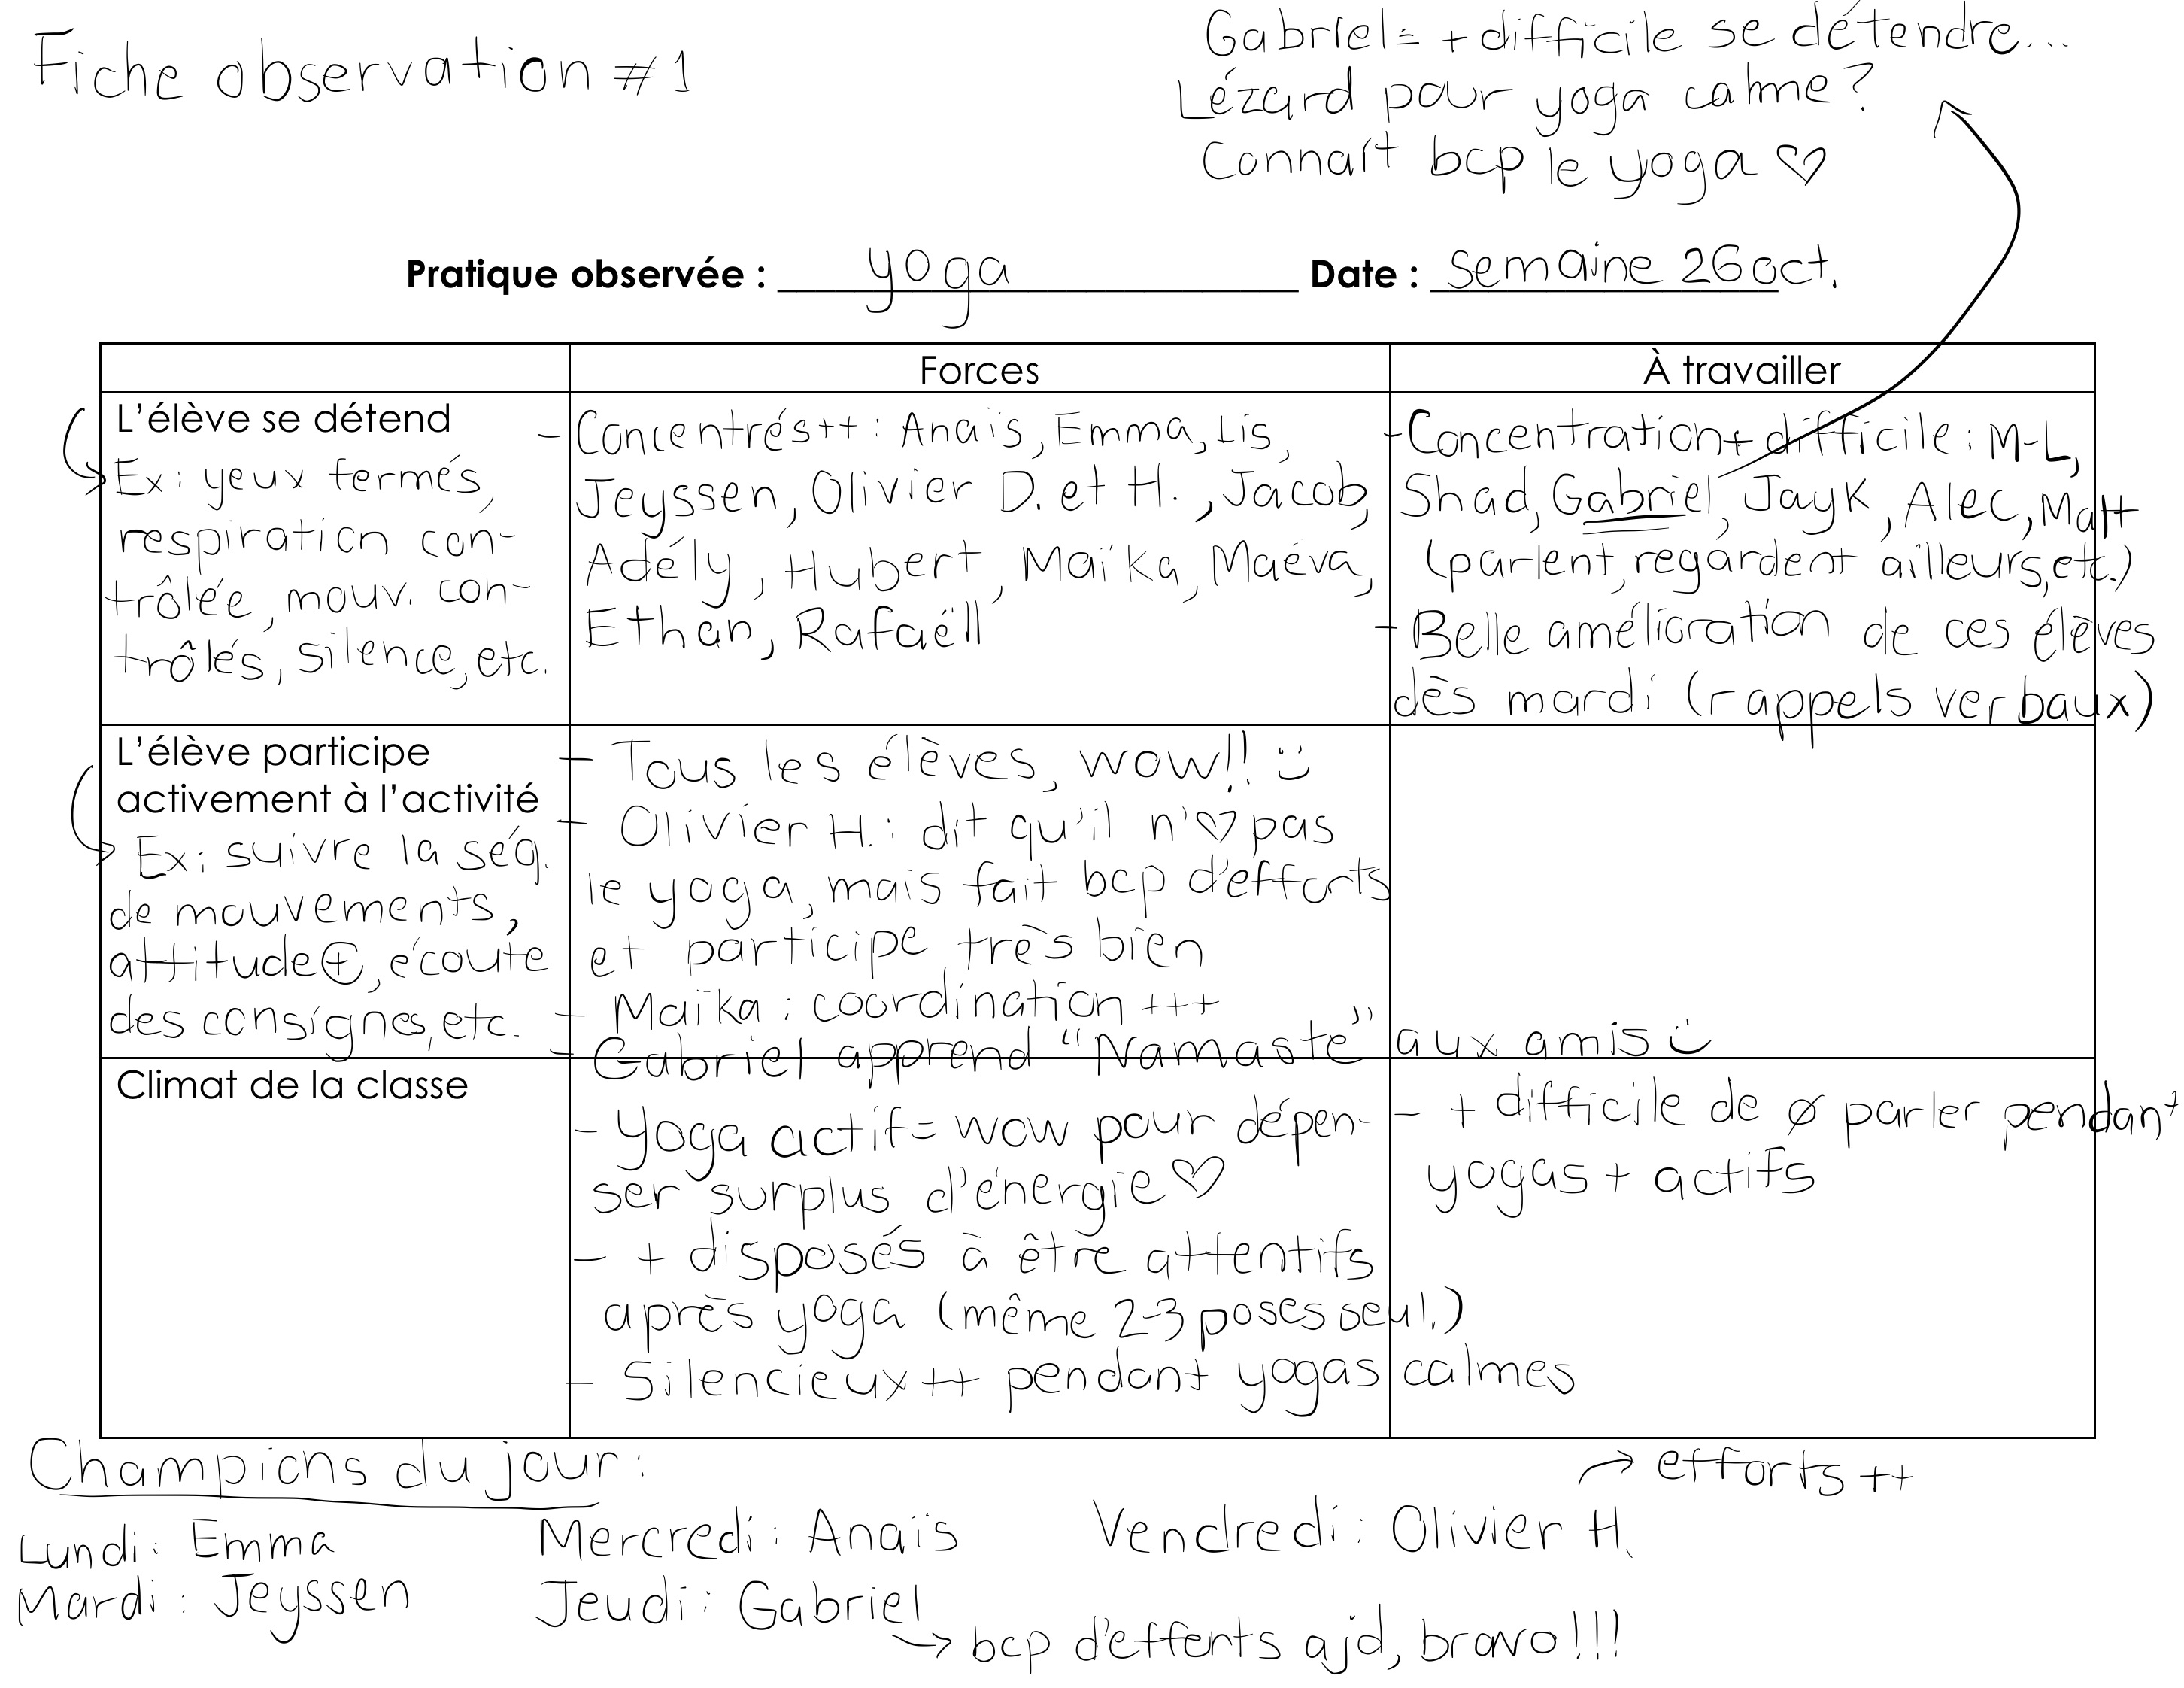 Fiche observation #1
Gabriel = + difficile se détendre...
Lézard pour yoga calme?
Connaît bcp le yoga ♡
Pratique observée : yoga Date : semaine 26 oct.
Forces
À travailler
L'élève se détend
Ex: yeux fermés,
respiration con-
trôlée, mouv. con-
trôlés, silence, etc.
- Concentrés++ : Anaïs, Emma, Lis,
Jeyssen, Olivier D. et H., Jacob,
Adély, Hubert, Maïka, Maéva,
Ethan, Rafaëll
- Concentration + difficile : M-L,
Shad, Gabriel, Jayk, Alec, Matt
(parlent, regardent ailleurs, etc.)
- Belle amélioration de ces élèves
dès mardi (rappels verbaux)
L'élève participe
activement à l'activité
Ex: suivre la séq.
de mouvements,
attitude ⊕, écoute
des consignes, etc.
- Tous les élèves, wow!! :)
- Olivier H. : dit qu'il n'♡ pas
le yoga, mais fait bcp d'efforts
et participe très bien
- Maïka : coordination +++
- Gabriel apprend "Namasté" aux amis :)
Climat de la classe
- Yoga actif = wow pour dépen-
ser surplus d'énergie ♡
- + disposés à être attentifs
après yoga (même 2-3 poses seul.)
- Silencieux ++ pendant yogas calmes
- + difficile de ø parler pendant
yogas + actifs
Champions du jour :
Lundi : Emma
Mardi : Jeyssen
Mercredi : Anaïs
Jeudi : Gabriel
→ bcp d'efforts ajd, bravo!!!
Vendredi : Olivier H.
→ efforts ++